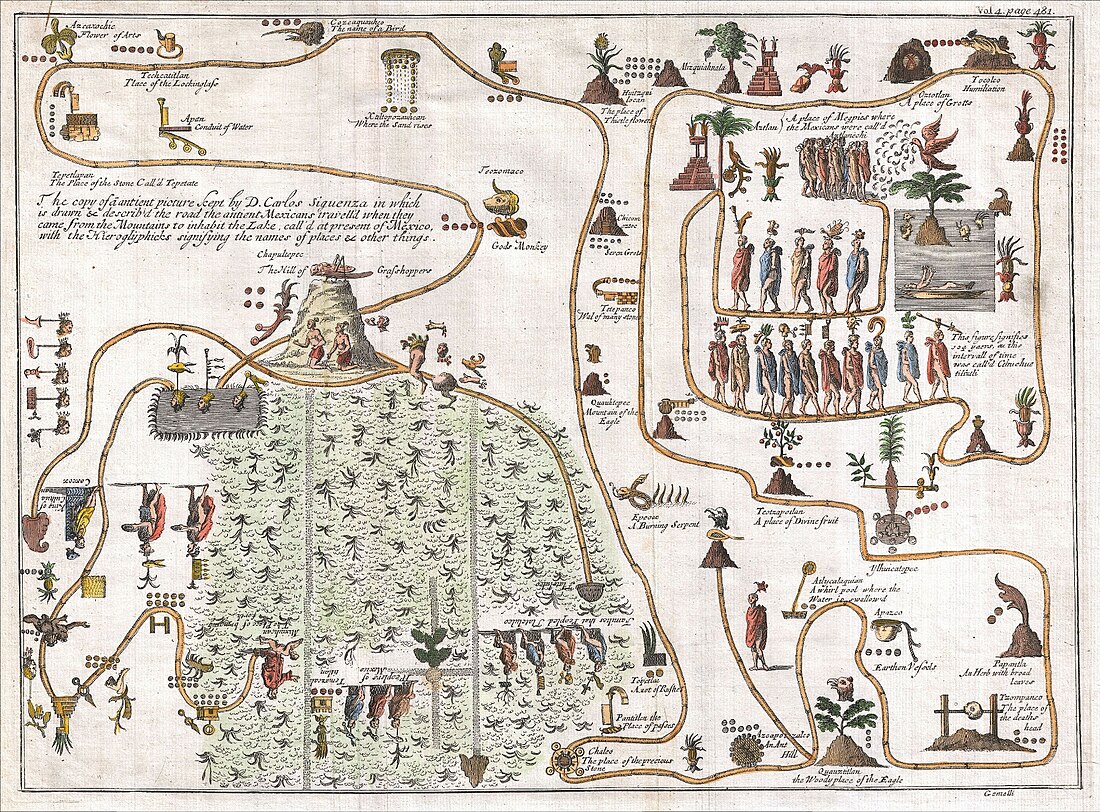 Vol 4. page 481.
Azcaxochic
Flower of Ants
Cozcaquauhco
The name of a Bird
Techcautlan
Place of the Lookinglass
Apan
Conduit of Water
Xaltopozauhcan
Where the Sand rises
Huitzqui
locan
The place of
Thistle flowers
Mizquiahuala
Oztotlan
A place of Grotts
Tocolco
Humiliation
Aztlan
A place of Megpies where
the Mexicans were call'd
Tepetlapan
The Place of the Stone Call'd Tepetate
The copy of a antient picture kept by D. Carlos Siguenza in which
is drawn & describ'd the road the antient Mexicans travell'd when they
came from the Mountains to inhabit the Lake, call'd at present of Mexico,
with the Hieroglyphicks signifying the names of places & other things.
Teozomaco
Gods Monkey
Chicom
oztoc
Seven Grots
Chapultepec
The Hill of Grashoppers
Tetepanco
Wal of many stones
This figure signifies
years, as this
intervall of time
was call'd
Quauhtepec
Mountain of the
Eagle
Teotzapotlan
A place of Divine fruit
Epcovac
A Burning Serpent
Ylhuicatepec
Atlycalaquian
A whirl pool where the
Water is swallow'd
Apazco
Earthen Vessels
Papantla
An Herb with broad
leaves
Tzompanco
The place of
the deaths
head
King of
Culhua
Mexican
Families that Peopled Tlatelulco
Tolpetlac
A net of Rushes
Pantitlan the
Place of passes
Chalco
The place of the precious
Stone
Azcapozalco
An Ant
Hill
Quauhtitlan
the Woody place of the Eagle
Gemelli